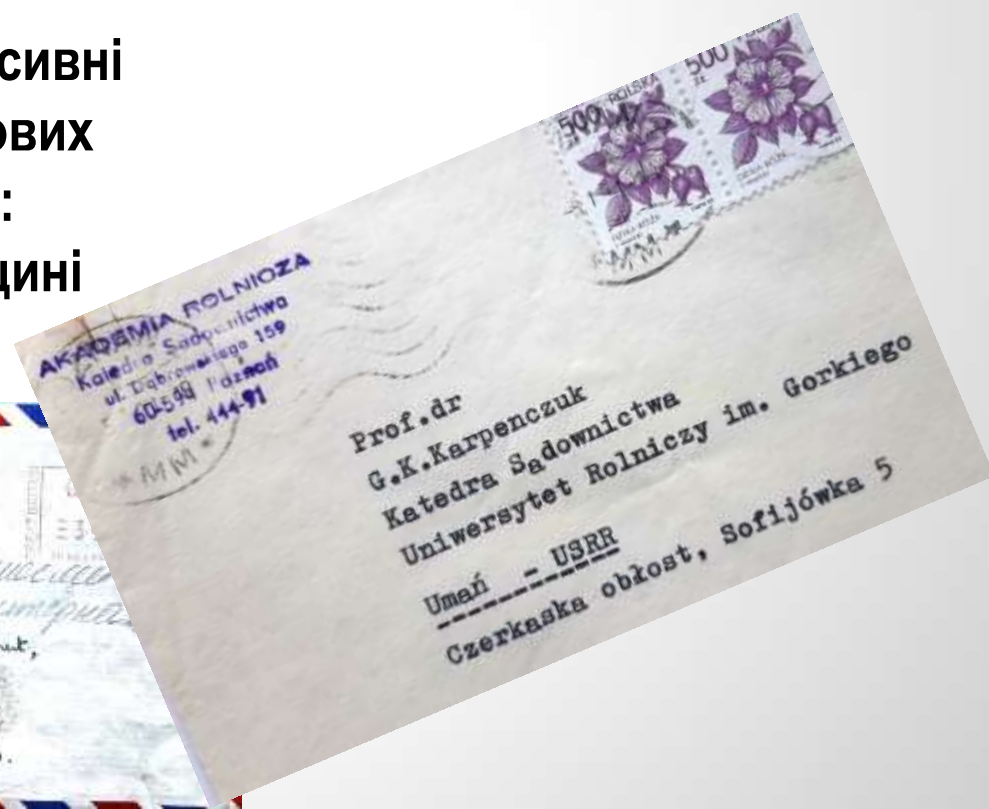 сивні
ових
:
щині
500
ZŁ
POLSKA
500
ZŁ
AKADEMIA ROLNICZA
Katedra Sadownictwa
ul. Dąbrowskiego 159
60-594 Poznań
tel. 444-91
MM
Prof.dr
G.K.Karpenczuk
Katedra Sądownictwa
Uniwersytet Rolniczy im. Gorkiego
Umań - USRR
Czerkaska obłost, Sofijówka 5